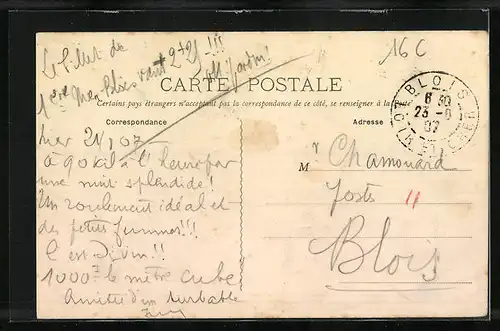 Le billet de
1ère Mer Blois vaut 2+2f !!!
16 C
CARTE POSTALE
Certains pays étrangers n'acceptant pas la correspondance de ce côté, se renseigner à la Poste
Correspondance
Adresse
BLOIS
6 30
23 - 
07
LOIR ET CHER
hier 21/ 07
à 90 kil à l'heure par
une nuit splendide !
Un roulement idéal et
des petites femmes !!!
C'est divin !!
1000 f le mètre cube
Amitié d'un
M r Chamouard
Postes
11
Blois